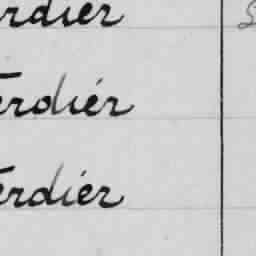 erdier
erdiér
erdiér